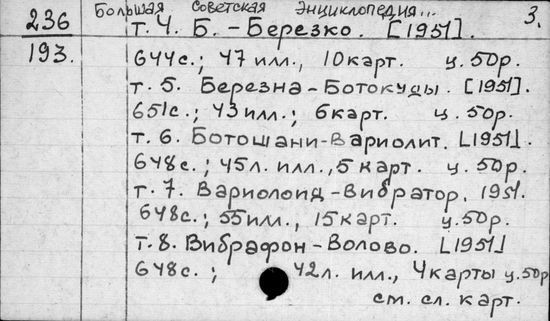 Большая советская энциклопедия...
3.
236
193.
т. 4. Б. - Березко. [1951].
644с.; 47 илл., 10 карт. ц. 50р.
т. 5. Березна - Ботокуды. [1951].
651с.; 43 илл.; 6 карт. ц. 50р.
т. 6. Ботошани - Вариолит. [1951].
648с.; 45л. илл., 5 карт. ц. 50р.
т. 7. Вариолоид - Вибратор. 1951.
648с.; 55 илл., 15 карт. ц. 50р.
т. 8. Вибрафон - Волово. [1951]
648с.; 42л. илл., 4 карты ц. 50р
см. сл. карт.